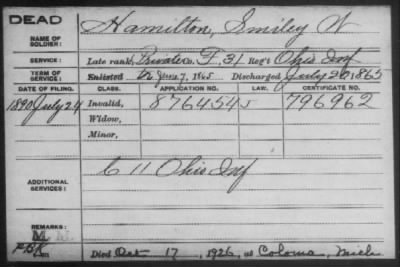 DEAD
Hamilton, Smiley W
NAME OF SOLDIER:
SERVICE: Late rank, Private Co. F, 31 Reg't Ohio Inf
TERM OF SERVICE: Enlisted June 7, 1865 Discharged July 20, 1865
DATE OF FILING. CLASS. APPLICATION NO. LAW. CERTIFICATE NO.
1890 July 24 Invalid, 876454 796962
Widow,
Minor,
C 11 Ohio Inf
ADDITIONAL SERVICES:
REMARKS:
Died Oct 17, 1926, at Coloma, Mich